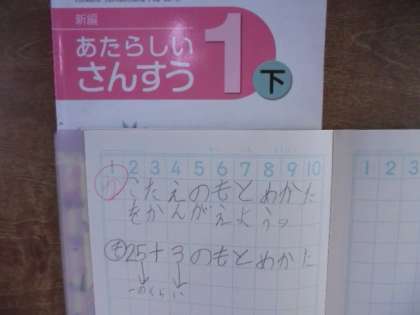 新編
あたらしい
さんすう
1
下
1 2 3 4 5 6 7 8 9 10
1 2 3
め こたえのもとめかた
をかんがえよう。
も 25+3 のもとめかた
一のくらい